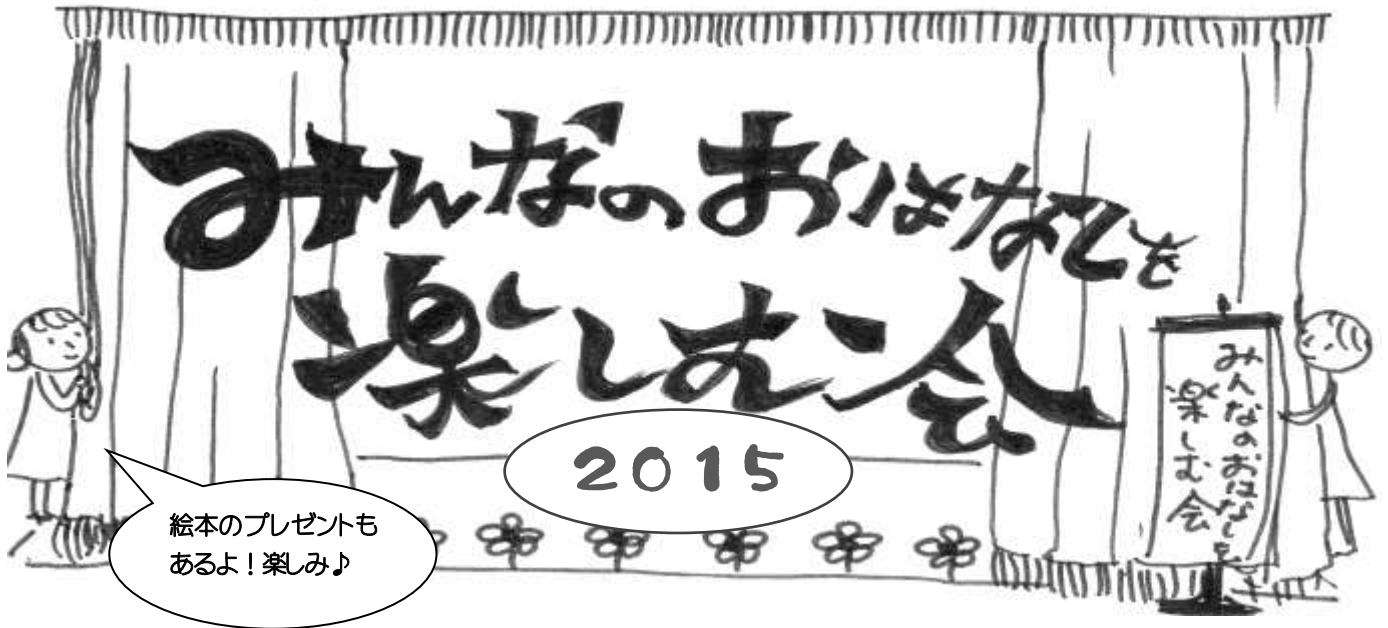 みんなのおはなしを
楽しむ会
2015
絵本のプレゼントも
あるよ!楽しみ♪
みんなのおはなしを
楽しむ会